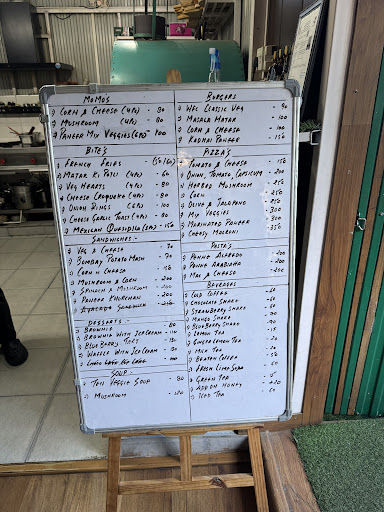 MOMO'S
CORN & CHEESE (4PC) - 80
MUSHROOM (4PC) - 80
PANEER MIX VEGGIES (6PC) - 100
BITE'S
FRENCH FRIES
MATAR KI POTLI (4PC) - 60
VEG HEARTS (4PC) - 80
CHEESE CROQUETTE (4PC) - 80
ONION RINGS (6PC) - 100
CHEESE GARLIC TOAST (4PC) - 80
MEXICAN QUESIDILLA - 150
SANDWICHES
VEG & CHEESE
BOMBAY POTATO MASH - 70
CORN N CHEESE - 150
MUSHROOM & CORN - 200
SPINACH & MUSHROOM - 200
PANEER KHURCHAN - 200
DESSARTS
BROWNIE
BROWNIE WITH ICECREAM
BLUE BERRY TART
WAFFLE WITH ICE CREAM
SOUP
TOM VEGGIE SOUP - 80
MUSHROOM - 120
BURGERS
WFC CLASSIC VEG - 90
MASALA MATAR - 100
CORN & CHEESE - 100
KADHAI PANEER - 150
PIZZA'S
TOMATO & CHEESE - 150
ONION, TOMATO, CAPSICUM - 200
HERBED MUSHROOM - 250
CORN - 250
OLIVE & JALAPENO - 250
MIX VEGGIES - 300
MARINATED PANEER - 300
CHEESY MACRONI - 350
PASTA'S
PENNE ALFREDO - 200
PENNE ARABIANO - 200
MAC & CHEESE - 200
BEVERAGES
COLD COFFEE
CHOCOLATE SHAKE
STRAWBERRY SHAKE
MANGO SHAKE
BLUEBERRY SHAKE
LEMON TEA
GINGER LEMON TEA
MILK TEA
BEATEN COFFEE
FRESH LIME SODA
GREEN TEA
ADD ON HONEY
ICED TEA